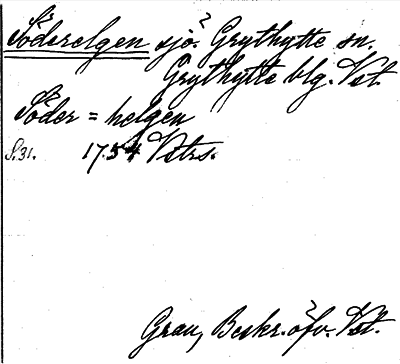 Söderelgen sjö? Grythytte sn.
Grythytte blg. Vst.
Söder=helgen
S.31. 1754 Vstrs.
Grau, Beskr. öfv. Vst.